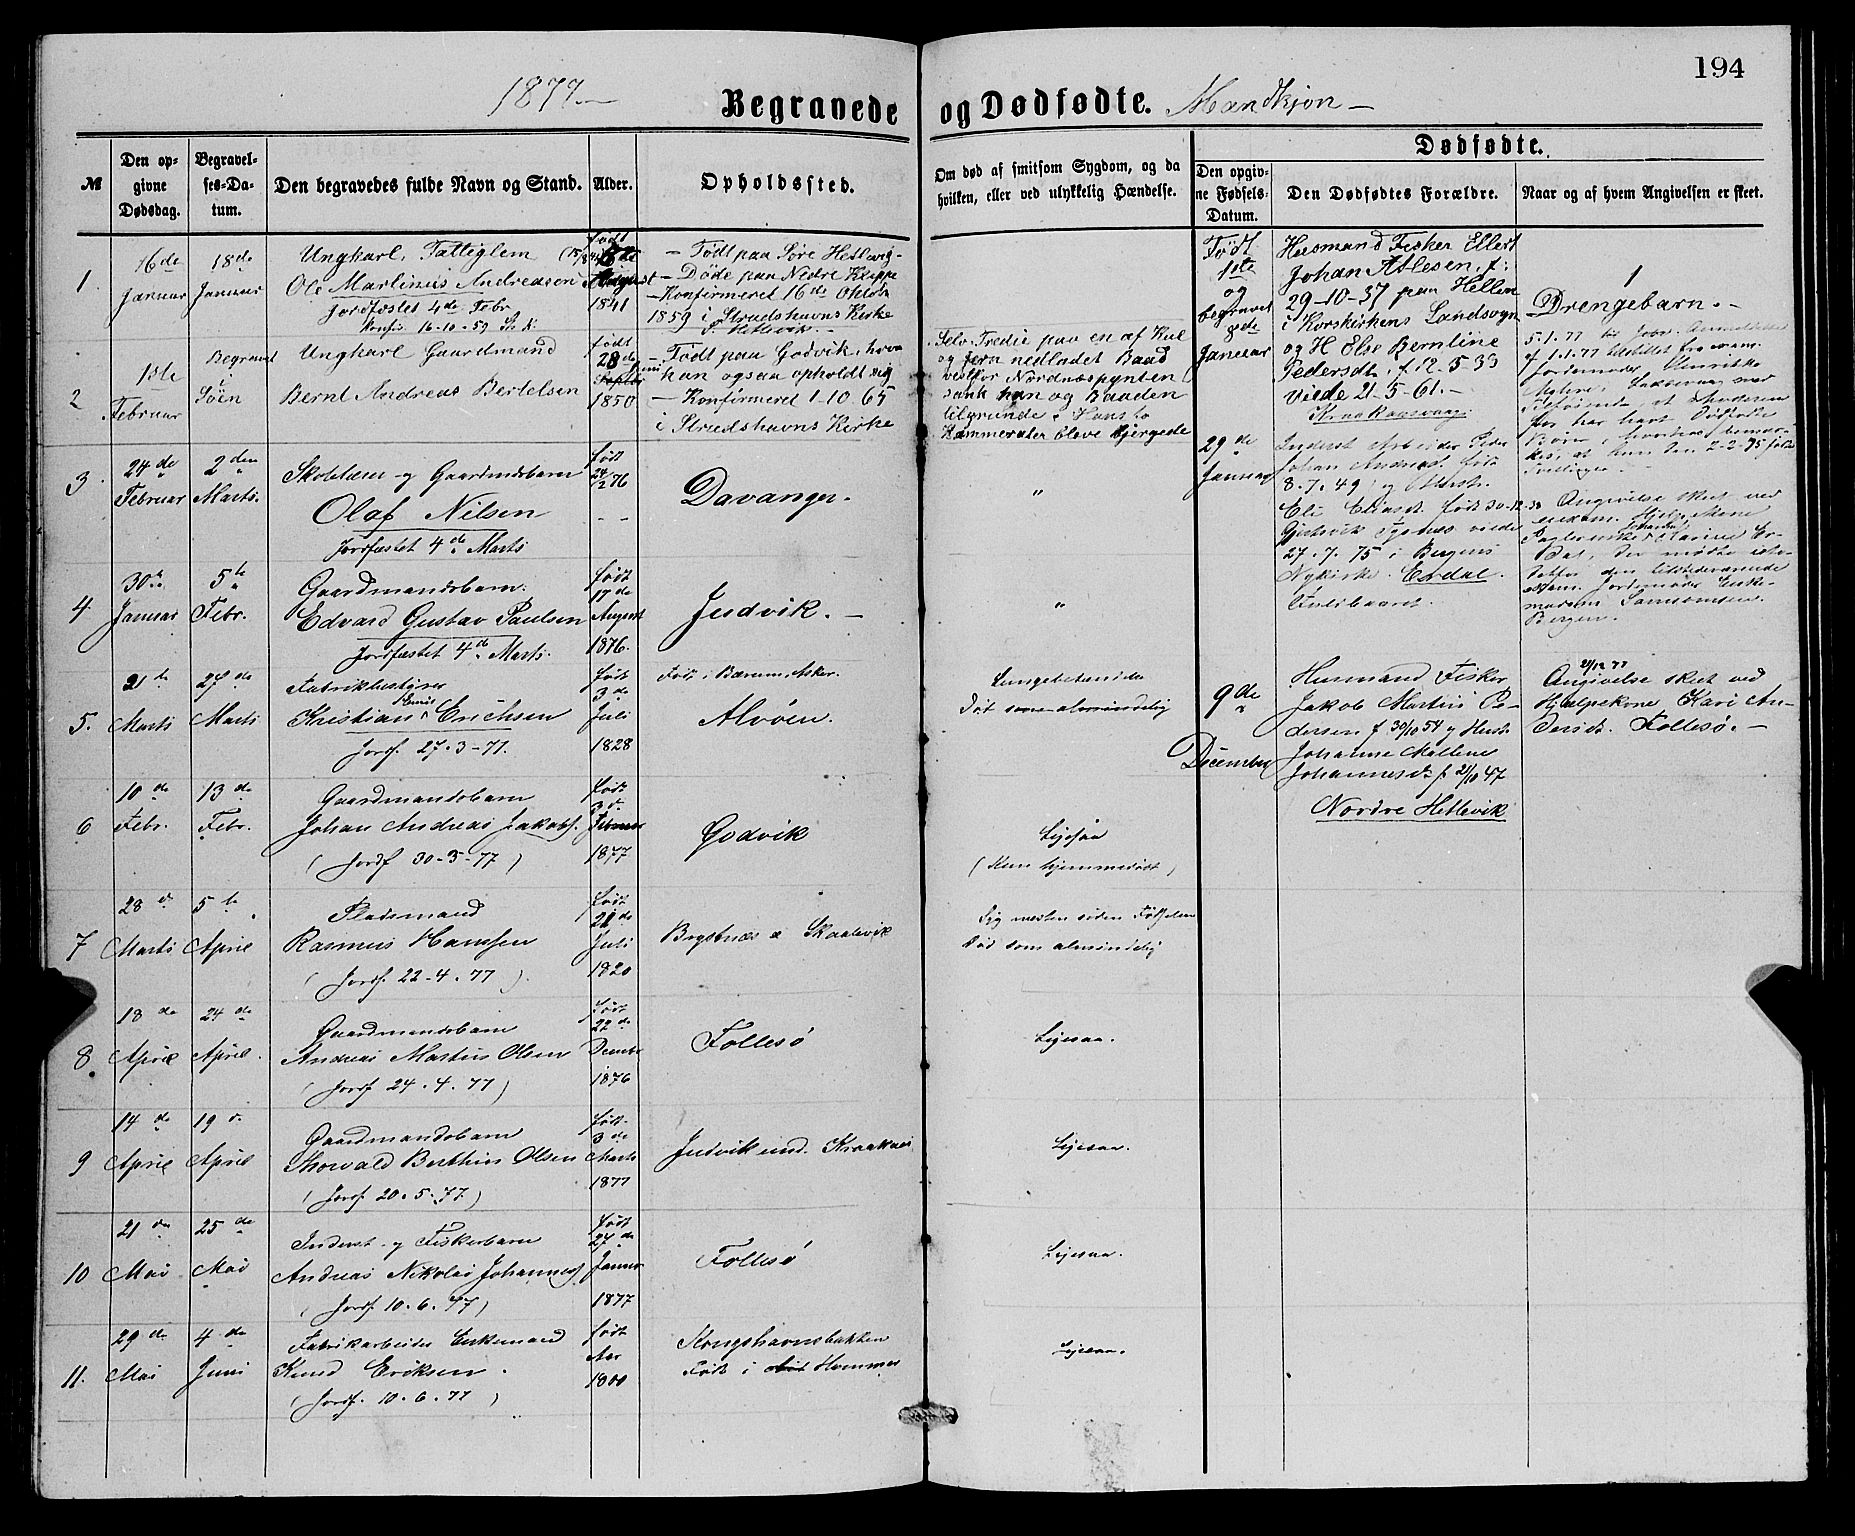 194
1877.
Begravede og Dødfødte. Mandkjøn
№
Den opgivne Dødsdag.
Begravelses-Datum.
Den begravedes fulde Navn og Stand.
Alder.
Opholdssted.
Om død af smitsom Sygdom, og da hvilken, eller ved ulykkelig Hændelse.
Dødfødte.
Den opgivne Fødsels-Datum.
Den Dødfødtes Forældre.
Naar og af hvem Angivelsen er skeet.
1
16de Januar
18de Januar
Ungkarl, Fattiglem
Ole Martinus Andreasen
Jordfæstet 4de Febr
Konfir. 16-10-59
født
August
1841
- Født paa Søre Hetlevig -
- Døde paa Nedre Kleppe
- Konfirmeret 16de Oktob.
1859 i Strudshavns Kirke
Hetlevik.
2
1ste Februar
Begravet i Søen
Ungkarl Gaardmand
Bernt Andreas Bertelsen
født
28de
1850
- Født paa Godvik, hvor
han ogsaa opholdt sig
- Konfirmeret 1-10 65
i Strudshavns Kirke
Selv Tredie paa en af Kul
og Jern nedladet Baad
vestfor Nordnæspynten
sank han og Baaden
tilgrunde. Hans to
Kammerater bleve bjergede
3
24de Februar
2den Marts.
Skolelærer og Gaardmdsbarn
Olaf Nilsen
Jordfæstet 4de Marts
født
24/12 76
Davanger.
"
4
30te Januar
5te Febr.
Gaardmandsbarn.
Edvard Gustav Paulsen
Jordfæstet 4de Marts.
født
17de
August
1876.
Indvik.
"
5.
21te Marts
27de Marts
Fabrikbestyrer
Kristian Erichsen
Jordf. 27-3-77.
født
3de
Juli
1828
Født i Bærum Asker.
Alvøen.
Lungebetændelse
Død som almindelig
6
10de Febr.
13de Febr.
Gaardmandsbarn
Johan Andreas Jakobs.
(Jordf 30-3-77)
født
3de
Februar
1877
Godvik
Ligesaa
(Kun hjemmedøbt)
7
28de Marts
5te April
Pladsmand
Rasmus Hanssen
(Jordf. 22-4-77)
født
21de
Juli
1820
Bogstnæs u Skaalevik
Syg mesten siden Fødselen
Død som almindelig
8.
18de April
24de April.
Gaardmandsbarn
Andreas Martin Olsen
(Jordf 24.4.77)
født
22de
Decembr
1876
Follesø
Ligesaa.
9
14de April
19de April
Gaardmandsbarn
Thorvald Berthin Olsen
(Jordf 20.5.77)
født
3de
Marts
1877
Indvik und. Kraaknes
Ligesaa.
10
21de Mai
25de Mai
Inderst og Fiskerbarn
Andreas Nikolai Johannes.
(Jordf. 10.6.77)
født
27de
Januar
1877
Follesø
Ligesaa.
11.
29de Mai
4de Juni
Fabrikarbeider Enkemand
Knud Eriksen
(Jordf. 10.6.77)
født
Aar
1800
Kongshavnsbakken
Født i Hammer
Ligesaa.
Født
1ste
og
begravet
8de
Januar
Husmand Fisker Ellert
Johan Atlesen, f:
29-10-37 paa Hellen
i Korskirkens Landsogn
og H Else Berntine
Pedersdt. f. 12.5 39
viede 21-5-61.-
Kraakaasvaag.
1
Drengebarn.-
29de Januar
Inderst Arbeider Peder
Johan født
8.7.49 og
Eli født 30-12-38
Gjertvik Tysnes viede
27.7.75 i Bergens
Nykirke. Erdal.
Angivelse skeet ved
Bergen.
9de December
Husmand Fisker
Jakob Martius Pedersen
f 30/10 54 og Hust.
Johanne Mallene
Johannesdt f 21/10 47
Nordre Hetlevik
21/12 77
Angivelse skeet ved
Hjælpekone Kari Andersdt.
Follesø.-